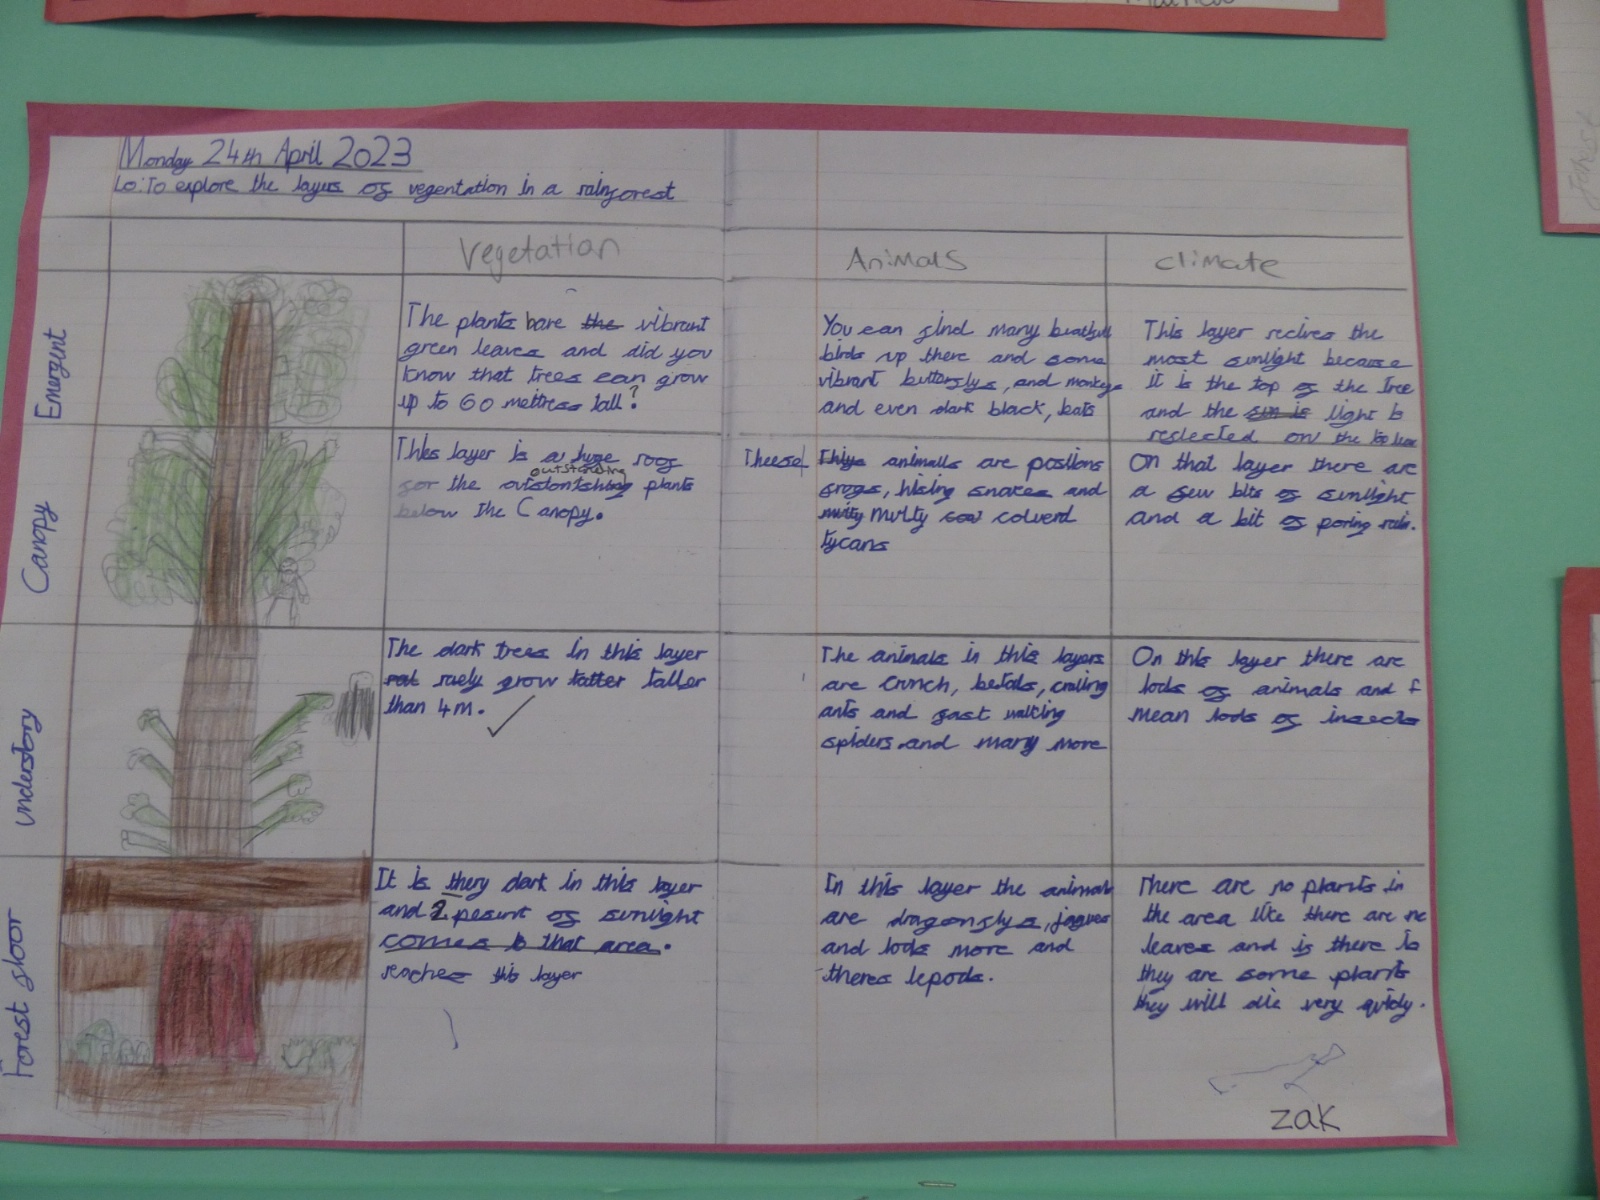 Monday 24th April 2023
Lo: To explore the layers of vegentation in a rainforest
Vegetation
Animals
climate
Emergent
The plants have the vibrant
green leaves and did you
know that trees can grow
up to 60 mettress tall?
You can find many
birds up there and some
vibrant butterflys, and monkeys
and even dark black, bats
This layer recives the
most sunlight because
it is the top of the Tree
and the sun is light is
reflected on the top
Canopy
This layer is a huge roof
outstanding
for the plants
below the Canopy.
Theese
animalls are posions
frogs, hising snakes and
multy multy coloverd
tycans
On that layer there are
a few bits of sunlight
and a bit of poring rain.
Understory
The dark trees in this layer
raely grow taller
than 4m.
The animals in this layers
are crunch, betals, crailing
ants and fast walking
spiders and many more
On this layer there are
lods of animals and I
mean lods of insects
Forest floor
It is they dark in this layer
and 2 pesent of sunlight
comes to that area.
reaches this layer
In this layer the animals
are dragonflys, jagues
and lods more and
theres lepods.
There are no plants in
the area like there are no
leaves and is there is
they are some plants
they will die very quicly.
zak